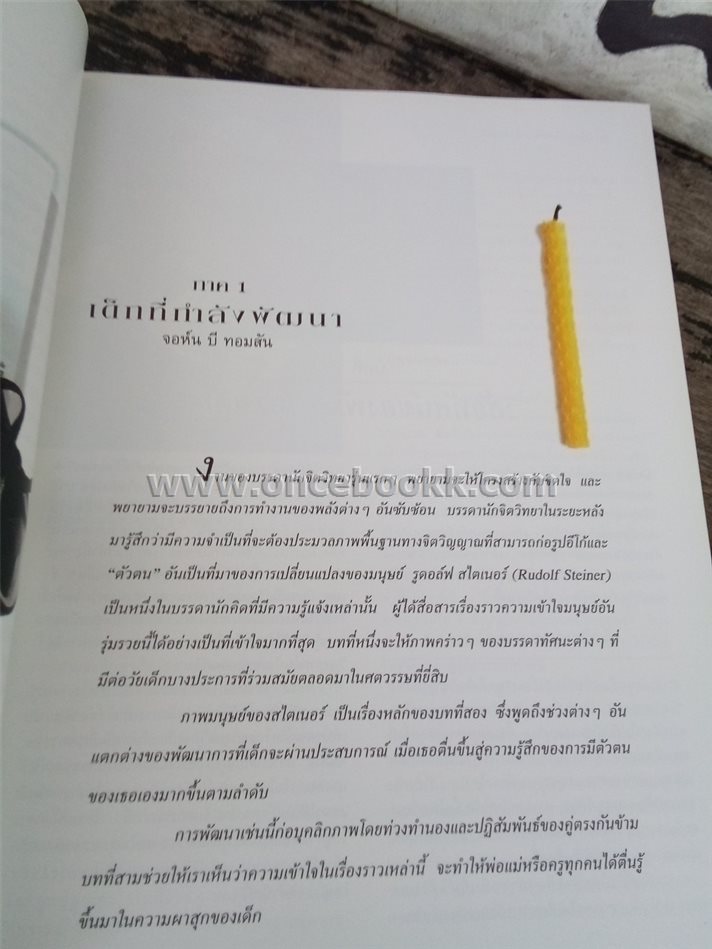 ภาค 1
เด็กที่กำลังพัฒนา
จอห์น บี ทอมสัน
www.oncebookk.com
งานของบรรดานักจิตวิทยารุ่นแรกๆ พยายามจะให้โครงสร้างกับจิตใจ และ
พยายามจะบรรยายถึงการทำงานของพลังต่างๆ อันซับซ้อน บรรดานักจิตวิทยาในระยะหลัง
มารู้สึกว่ามีความจำเป็นที่จะต้องประมวลภาพพื้นฐานทางจิตวิญญาณที่สามารถก่อรูปอีโก้และ
“ตัวตน” อันเป็นที่มาของการเปลี่ยนแปลงของมนุษย์ รูดอล์ฟ สไตเนอร์ (Rudolf Steiner)
เป็นหนึ่งในบรรดานักคิดที่มีความรู้แจ้งเหล่านั้น ผู้ได้สื่อสารเรื่องราวความเข้าใจมนุษย์อัน
รุ่มรวยนี้ได้อย่างเป็นที่เข้าใจมากที่สุด บทที่หนึ่งจะให้ภาพคร่าวๆ ของบรรดาทัศนะต่างๆ ที่
มีต่อวัยเด็กบางประการที่ร่วมสมัยตลอดมาในศตวรรษที่ยี่สิบ
ภาพมนุษย์ของสไตเนอร์ เป็นเรื่องหลักของบทที่สอง ซึ่งพูดถึงช่วงต่างๆ อัน
แตกต่างของพัฒนาการที่เด็กจะผ่านประสบการณ์ เมื่อเธอตื่นขึ้นสู่ความรู้สึกของการมีตัวตน
ของเธอเองมากขึ้นตามลำดับ
การพัฒนาเช่นนี้ก่อบุคลิกภาพโดยท่วงทำนองและปฏิสัมพันธ์ของคู่ตรงกันข้าม
บทที่สามช่วยให้เราเห็นว่าความเข้าใจในเรื่องราวเหล่านี้ จะทำให้พ่อแม่หรือครูทุกคนได้ตื่นรู้
ขึ้นมาในความผาสุกของเด็ก